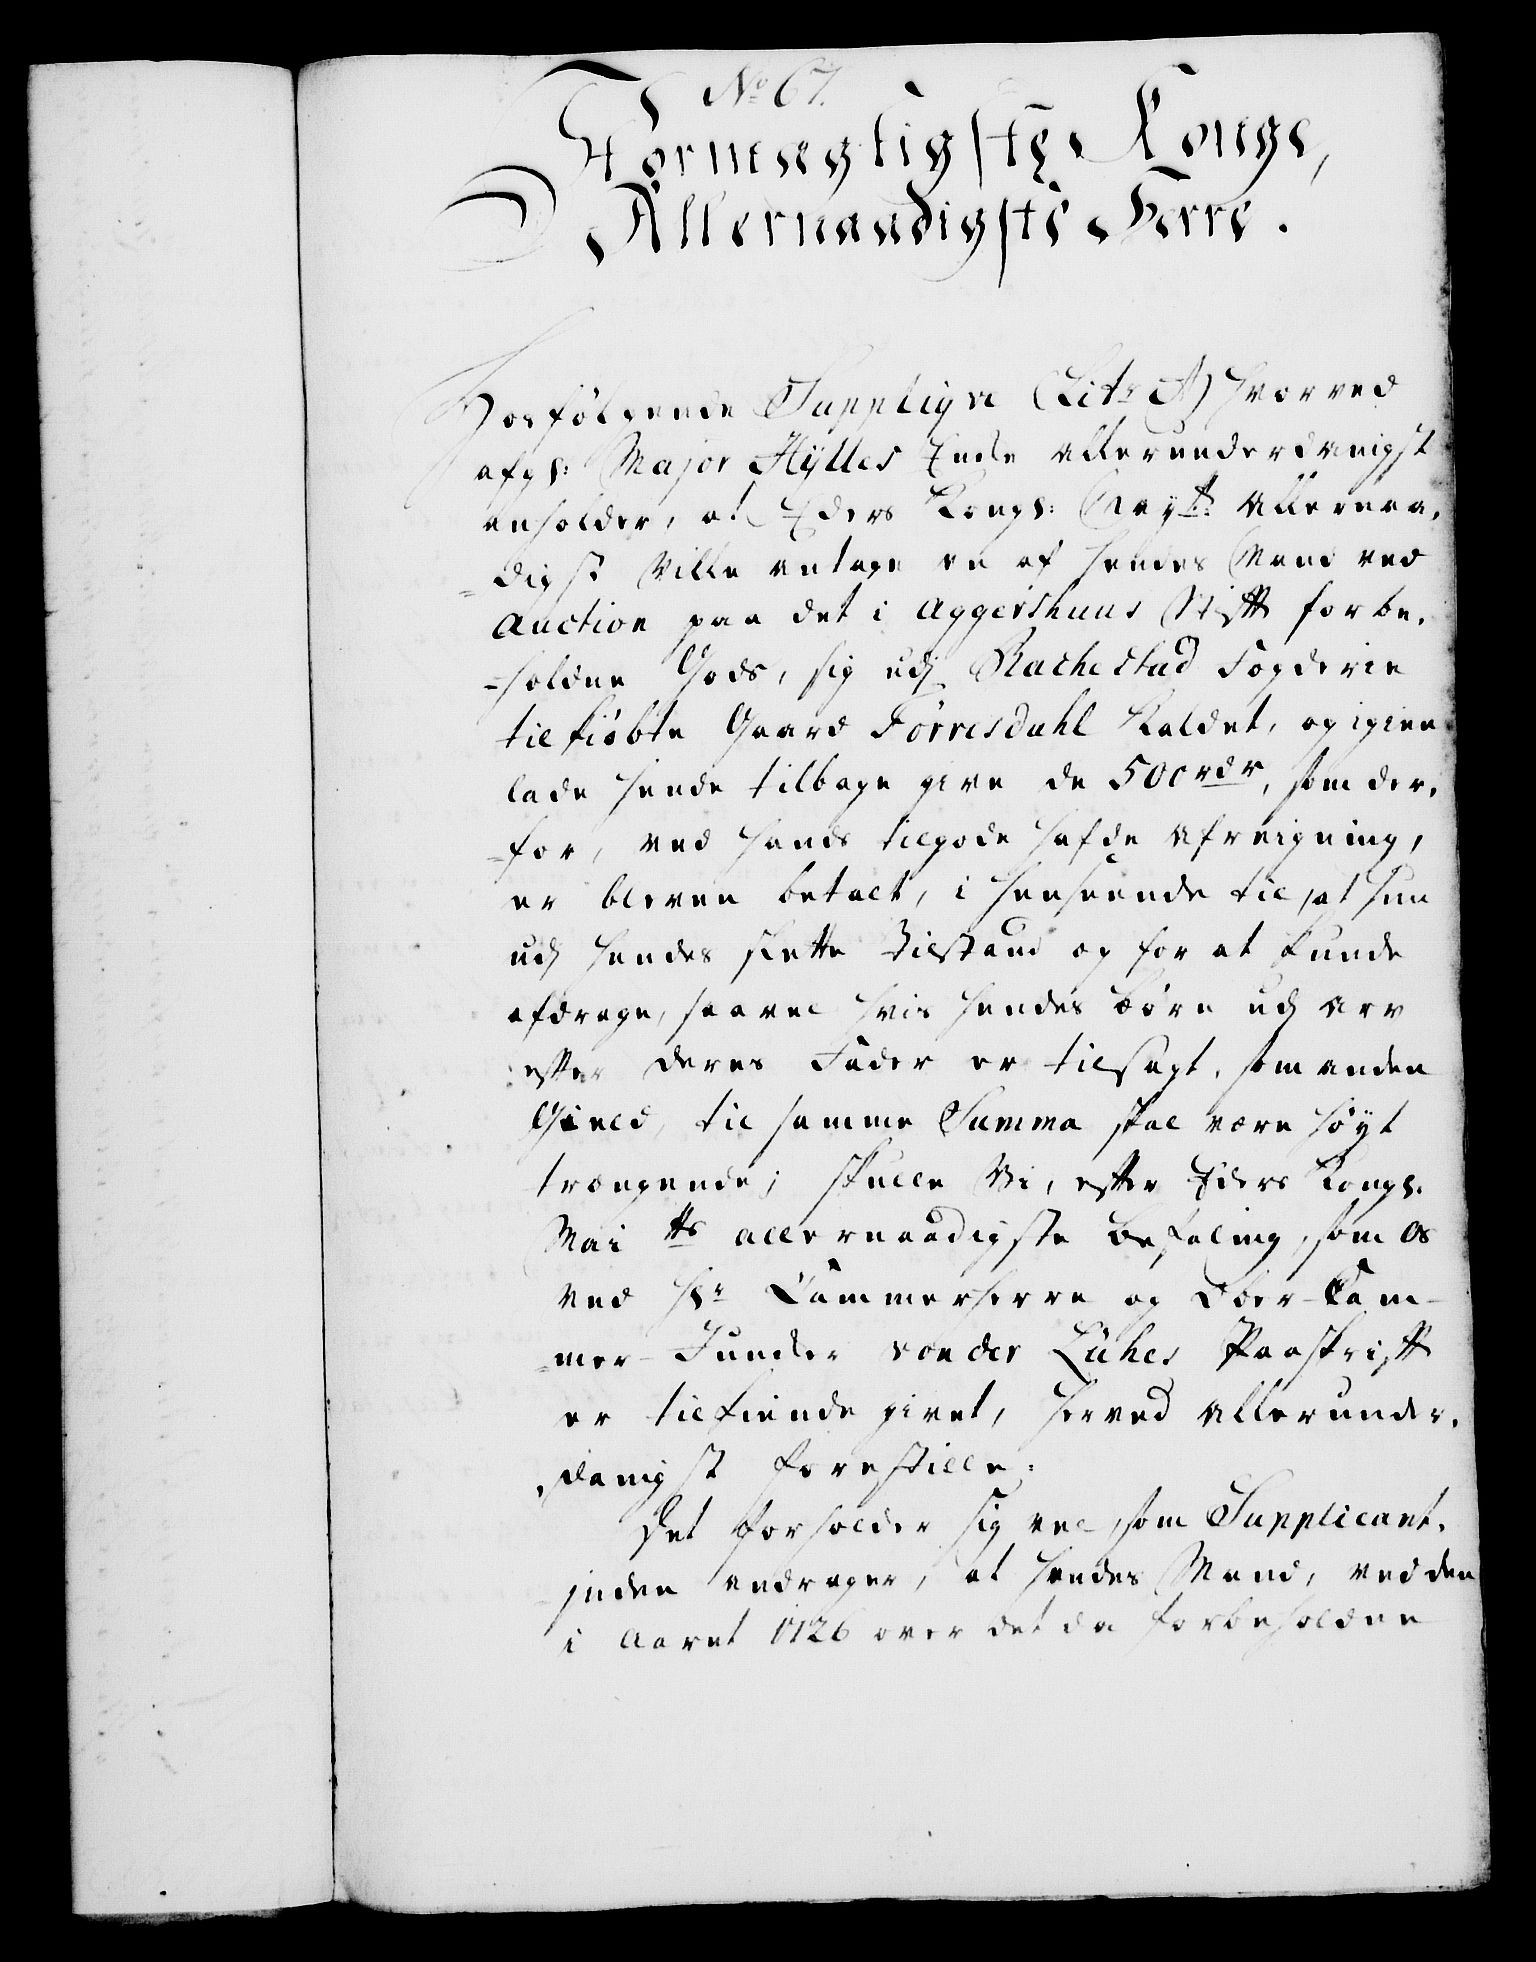 No 67.
Stormægtigste Konge,
Allernaadigste Herre.
Hosfølgende Supplique (Litr A) hvorved
afg: Major Hÿlles Enke allerunderdanigst
anholder, at Eders Kongl: Mayt: allernaa-
digst ville antage en af hendes Mand ved
Auction paa det i Aggershuus Stifft forbe-
-holdne Gods, sig udj Rachestad Fogderie
tilkiøbte Gaard Førresdahl kaldet, og igien
lade hende tilbage give de 500 rdr, som der-
-for, ved hands tilgode hafde Afreigning,
er bleven betalt, i henseende til, at hun
udj hendes slette Tilstand og for at kunde
afdrage, saavel hvis hendes Børn udj Arv
efter deres Fader er tilsagt, som anden
Gield, til samme Summa skal være høyt
trængende; skulle Vi, efter Eders Kongl.
Maitts allernaadigste Befaling, som os
ved Hr Cammerherre og Ober-Cam-
mer-Juncker von der Lühes Paaskrifft
er tilkiende givet, herved allerunder-
danigst forestille:
Det forholder sig vel, som Supplicant-
inden andrager, at hendes Mand, ved den
i Aaret 1726 over det da forbeholdne